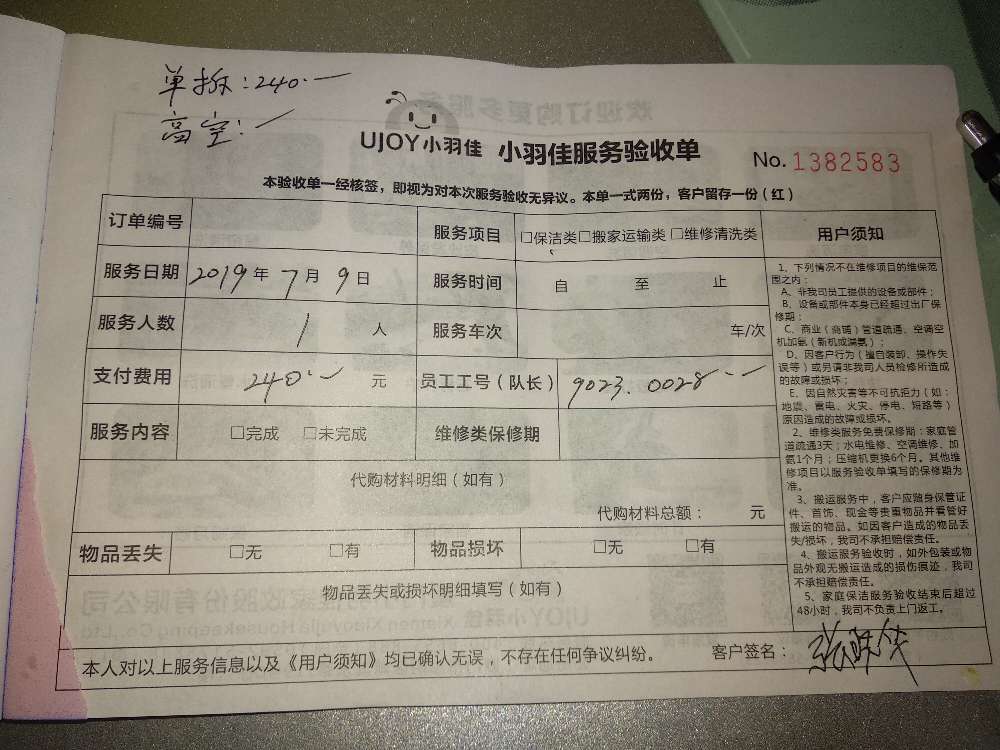 单拆:240.一
高空:/
UJOY小羽佳 小羽佳服务验收单 No.1382583
本验收单一经核签，即视为对本次服务验收无异议。本单一式两份，客户留存一份（红）
订单编号 服务项目 □保洁类□搬家运输类□维修清洗类
服务日期 2019年7月9日 服务时间 自 至 止
服务人数 1 人 服务车次 车/次
支付费用 240.一 元 员工工号（队长） 9023.0028
服务内容 □完成 □未完成 维修类保修期
代购材料明细（如有）
代购材料总额： 元
物品丢失 □无 □有 物品损坏 □无 □有
物品丢失或损坏明细填写（如有）
本人对以上服务信息以及《用户须知》均已确认无误，不存在任何争议纠纷。 客户签名：
用户须知
1、下列情况不在维修项目的维保范
围之内：
A、非我司员工提供的设备或部件；
B、设备或部件本身已经超过出厂保
修期；
C、商业（商铺）管道疏通、空调空
机加氨（新机或漏氨）；
D、因客户行为（擅自装卸、操作失
误等）或另请非我司人员检修所造成
的故障或损坏；
E、因自然灾害等不可抗拒力（如：
地震、雷电、火灾、停电、短路等）
原因造成的故障或损坏。
2、维修类服务免费保修期：家庭管
道疏通3天；水电维修、空调维修、加
氨1个月；压缩机更换6个月。其他维
修项目以服务验收单填写的保修期为
准。
3、搬运服务中，客户应随身保管证
件、首饰、现金等贵重物品并看管好
搬运的物品。如因客户造成的物品丢
失/损坏，我司不承担赔偿责任。
4、搬运服务验收时，如外包装或物
品外观无搬运造成的损伤痕迹，我司
不承担赔偿责任。
5、家庭保洁服务验收结束后超过
48小时，我司不负责上门返工。